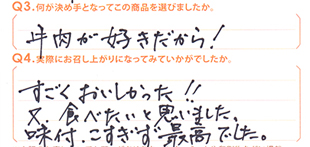 Q3.何が決め手となってこの商品を選びましたか。
牛肉が好きだから!
Q4.実際にお召し上がりになってみていかがでしたか。
すごくおいしかった!!
又、食べたいと思いました。
味付、こすぎず最高でした。